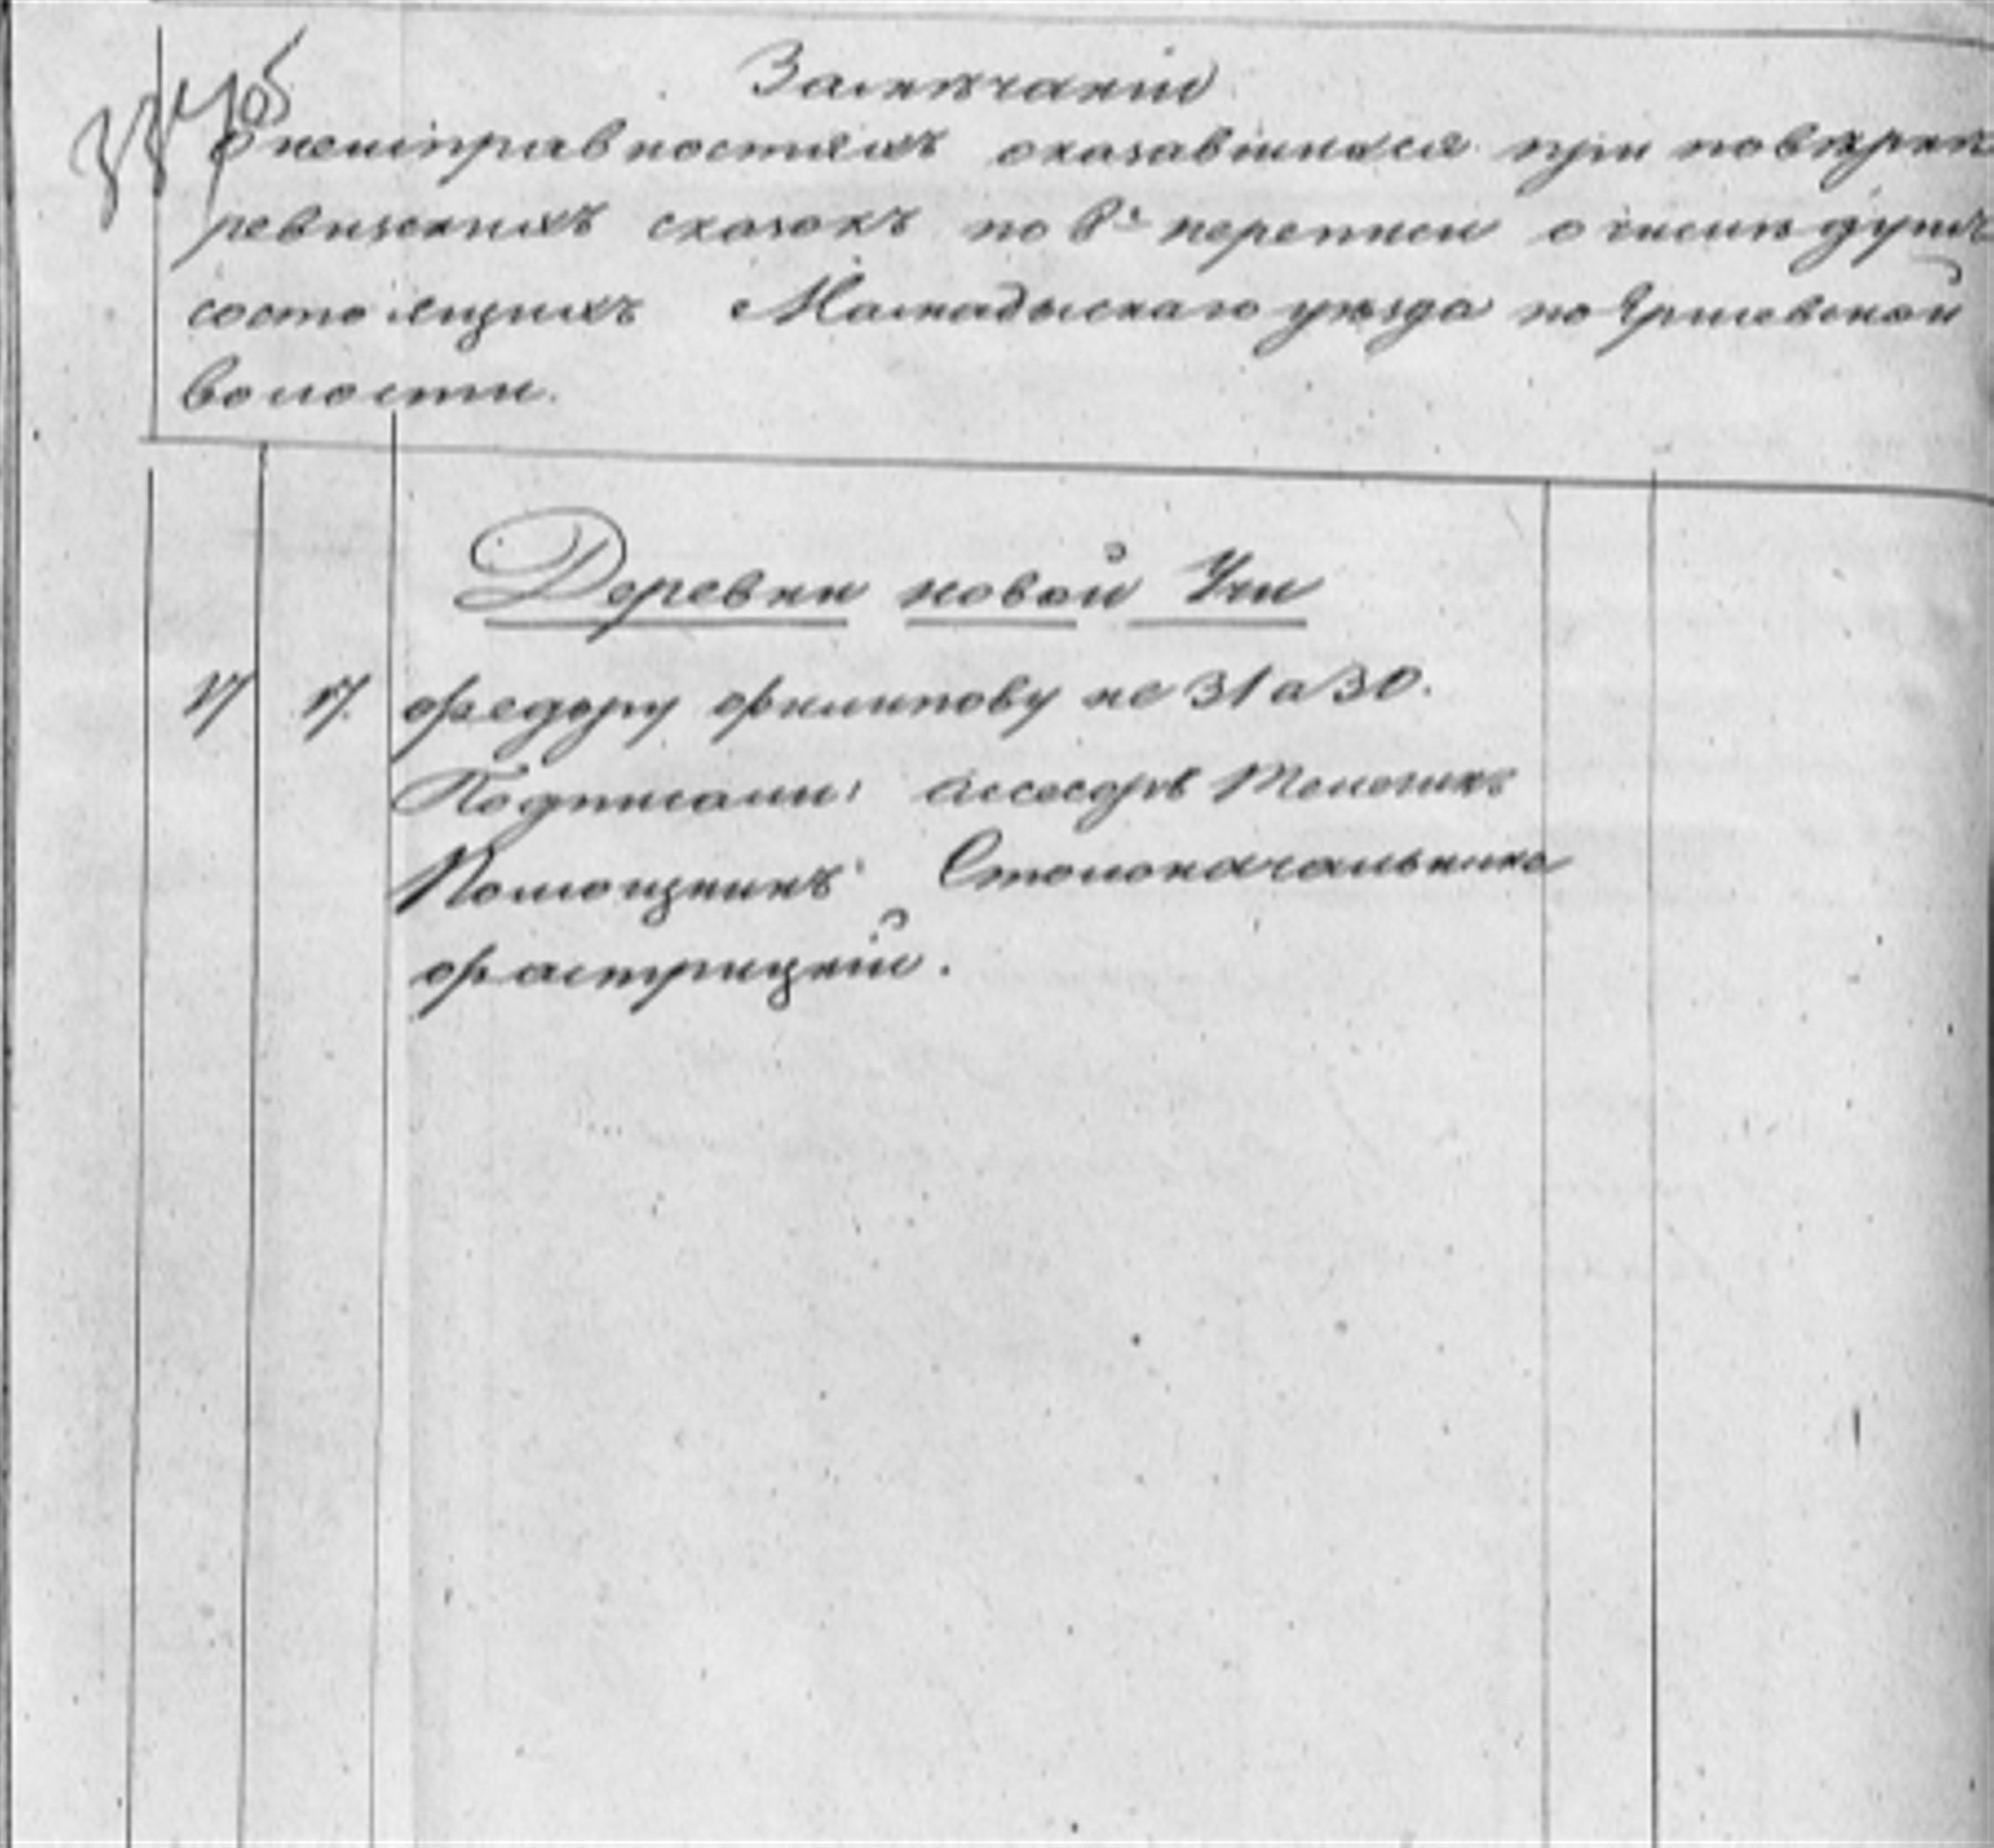 Замѣчаніи
о неисправностяхъ оказавшихся при повѣркѣ
ревизскихъ сказокъ по 8й переписи о числѣ душъ
состоящихъ Мамадыскаго уѣзда по
волости.
Деревни новой Учи
17 17. Федору Филипову не 31 а 30.
Подписали: Ассесоръ
Помощникъ Столоначальника
Фастрицкій.